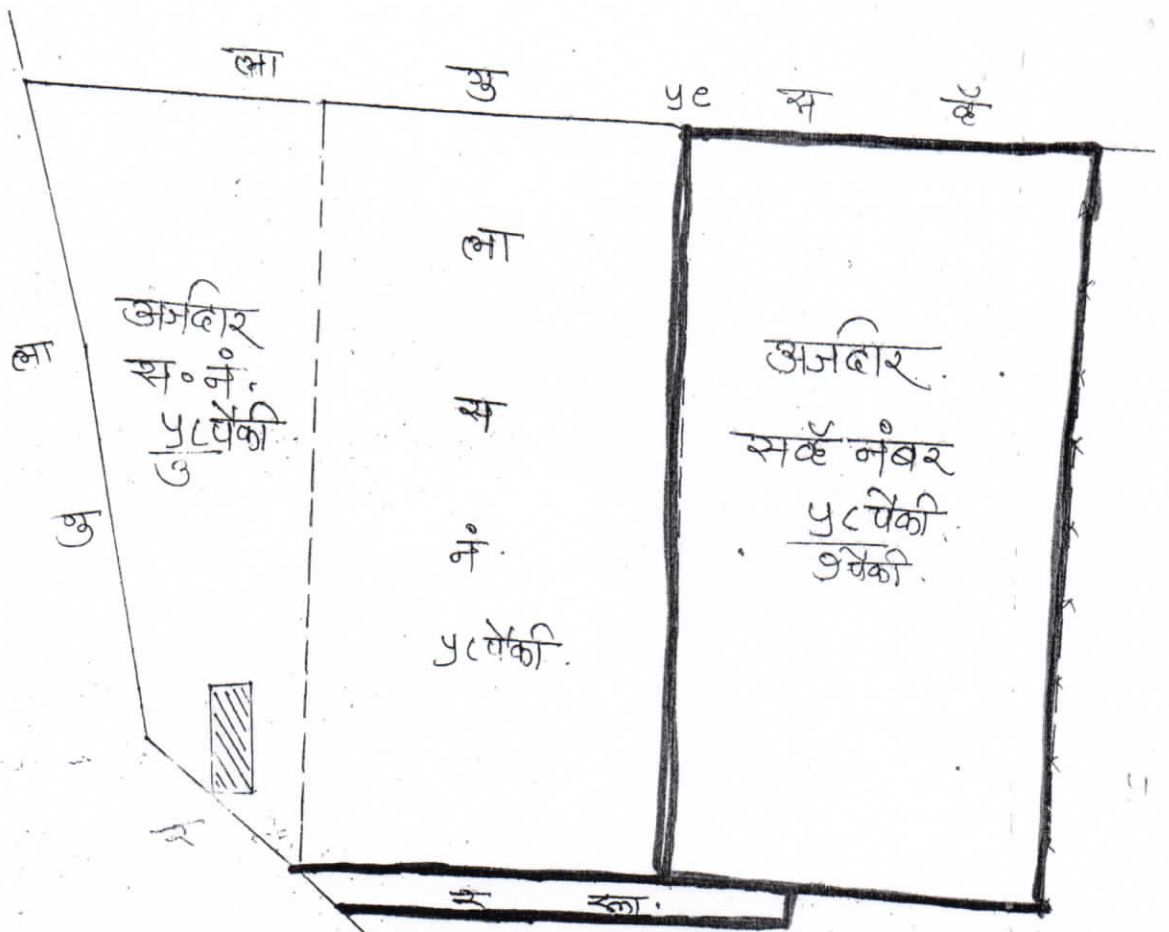 ला गु ५९ स र्व्हे
अर्जदार
स.नं.
५८पैकी
७
ला
गु
ला
स
नं.
५८पैकी.
अर्जदार.
सर्व्हे नंबर
५८पैकी.
१पैकी.
र
र स्ता.